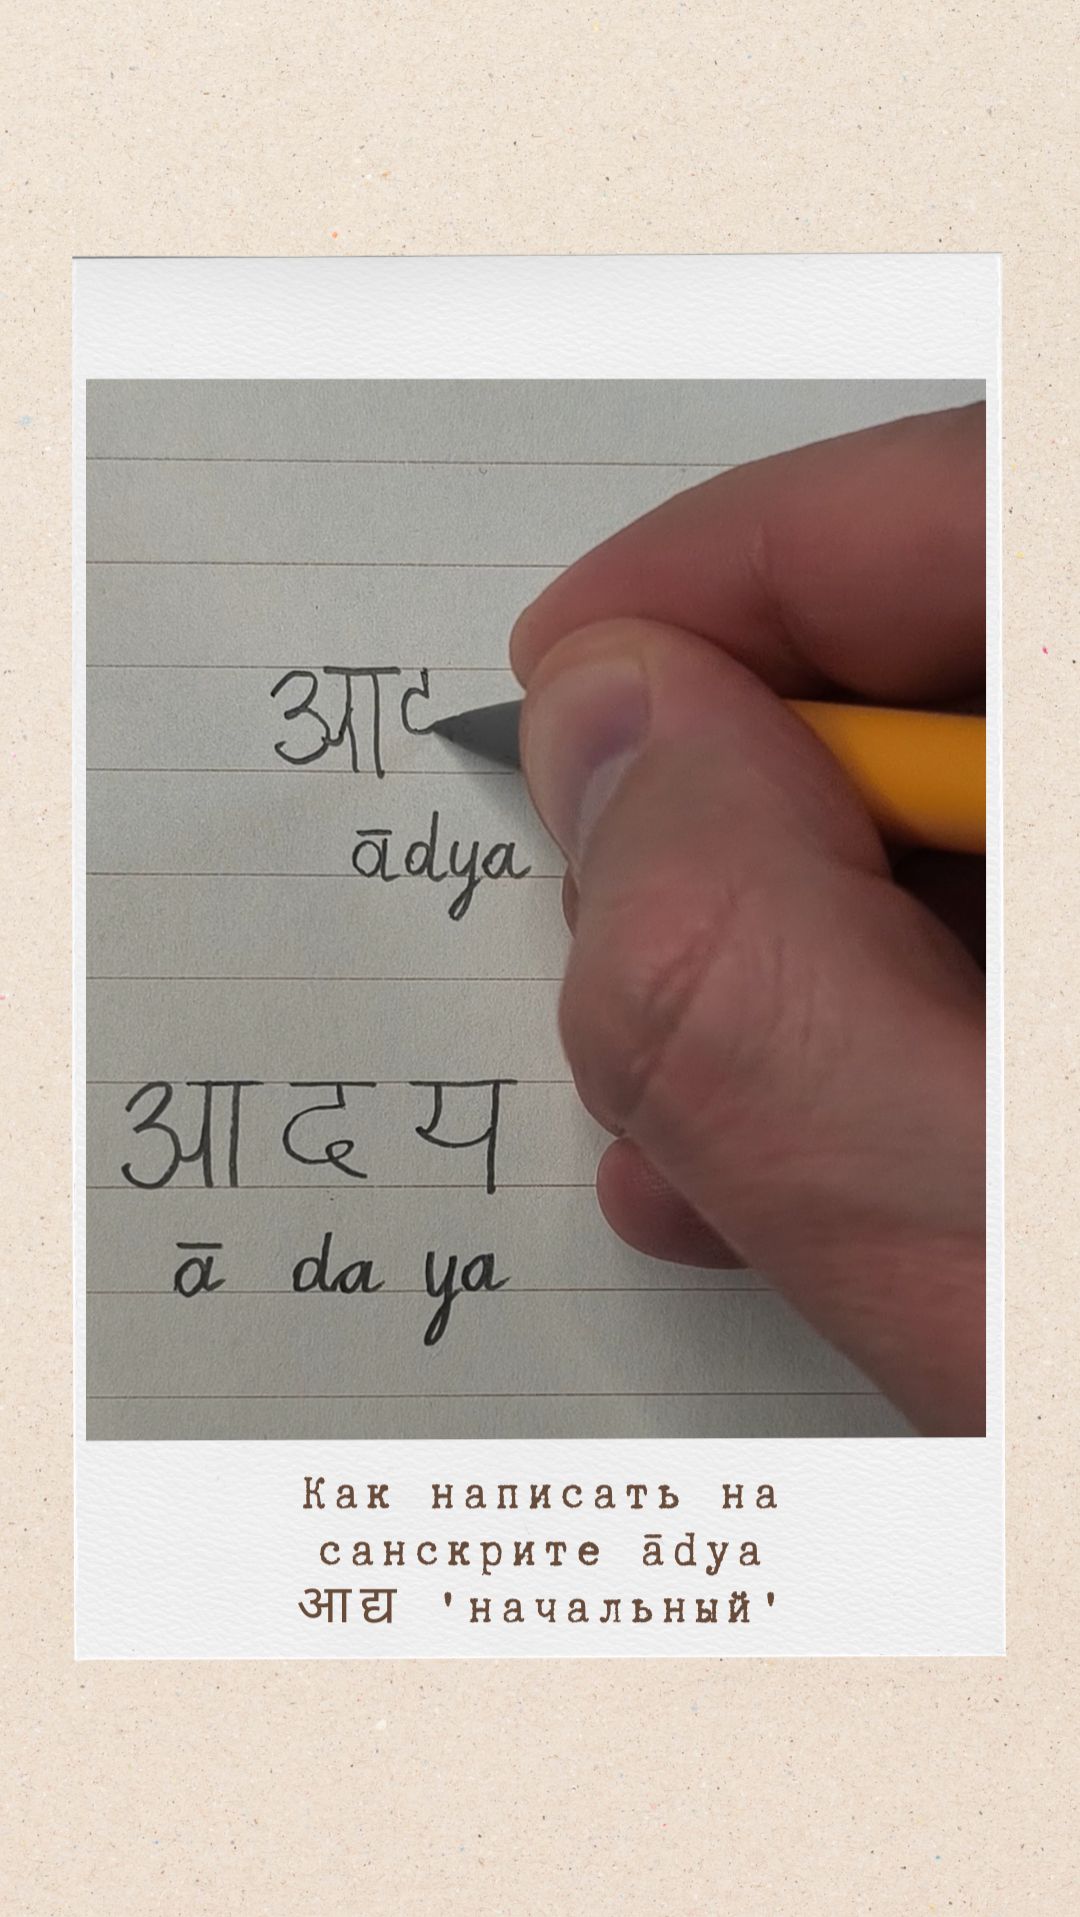 आद
ādya
आ द य
ā da ya
Как написать на
санскрите ādya
आद्य 'начальный'